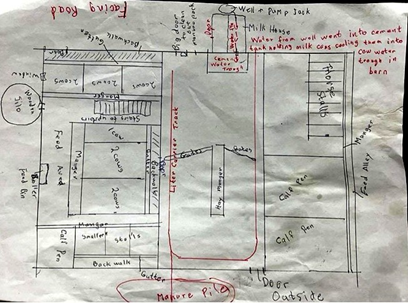 Facing Road
Well + Pump Jack
Milk House
Water from well went into cement
tank holding milk cans cooling them into
cow water
trough in
barn
Door
Cement
Water
trough
Backwalk
Gutter
Door
Window
Wooden
Silo
2 cows
2 cows
Manger
Stairs to upstairs
1 cow
2 cows
2 cows
Manger
Feed Area
Gutter
Backwalk
Litter Carrier Track
Gates
Gates
Hay Manger
Horse
Stalls
Manger
Feed Alley
Calf Pen
Calf Pen
Roller
Feed Bin
Manger
Smaller Stalls
Calf
Pen
Back walk
Gutter
Manure Pile
Door
Outside